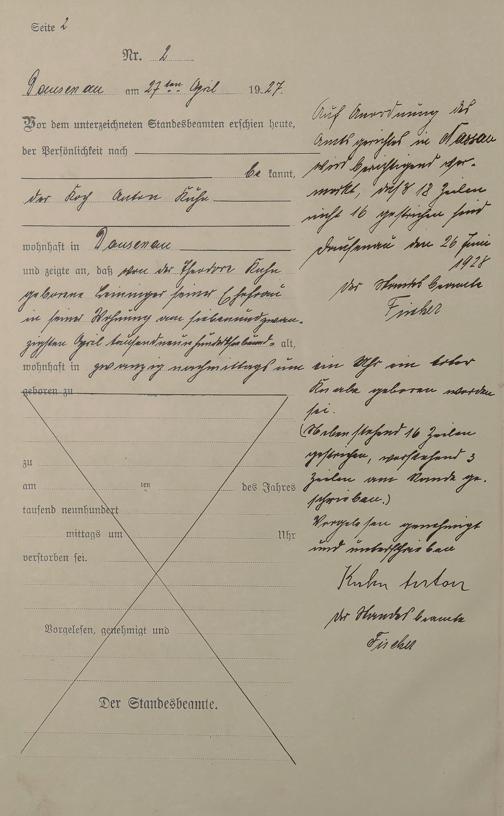 Seite 2
Nr. 2
Dausenau am 27ten April 1927.
Vor dem unterzeichneten Standesbeamten erschien heute,
der Persönlichkeit nach
be kannt,
der Anton Kuhn
wohnhaft in Dausenau
und zeigte an, daß von der Theodore Kuhn
geborene Leininger seiner Ehefrau
in seiner Wohnung am siebenundzwan-
zigsten April tausendneunhundertsiebund- alt,
wohnhaft in zwanzig nachmittags um
geboren zu
zu
am ten des Jahres
tausend neunhundert
mittags um Uhr
verstorben sei.
Vorgelesen, genehmigt und
Der Standesbeamte.
Auf Anordnung des
Amtsgerichtes in Nassau
wird berichtigend ver-
merkt, daß 18 Zeilen
nicht 16 gestrichen sind
Dausenau den 26 Juni
1928
Der Standesbeamte
Fischer
ein Uhr ein toter
Knabe geboren worden
sei.
(Nebenstehend 16 Zeilen
gestrichen, vorstehend 3
Zeilen am Rande ge-
schrieben.)
Vorgelesen genehmigt
und unterschrieben
Kuhn Anton
Der Standesbeamte
Fischer